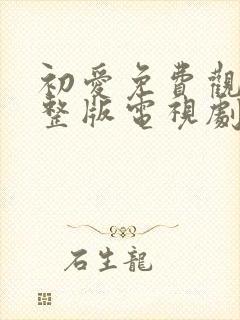 初愛免費觀
整版電視劇
石生龍